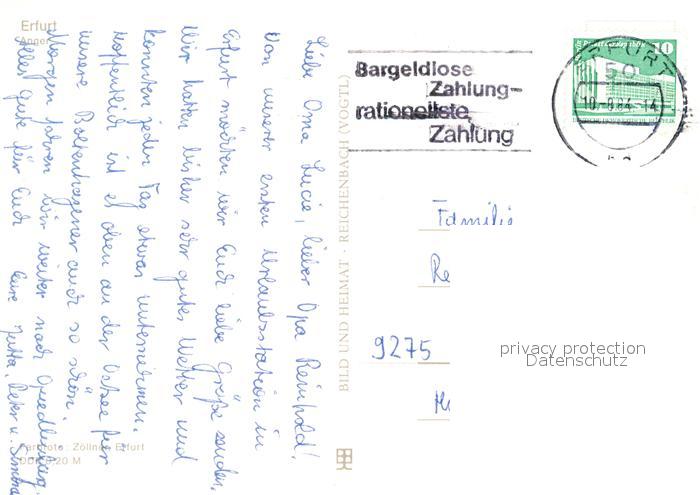 Erfurt
Anger
Liebe Oma Lucie, lieber Opa Reinhold!
Von unserer ersten Urlaubsstation in
Erfurt möchten wir Euch liebe Grüße senden.
Wir hatten bisher sehr gutes Wetter und
konnten jeden Tag etwas unternehmen.
Hoffentlich ist es oben an der Ostsee für
unsere Boltenhagener auch so schön.
Morgen fahren wir weiter nach Quedlinburg.
Alles Gute für Euch Eure Jutta, Peter u.
Farbfoto: Zöllner, Erfurt
0,20 M
BILD UND HEIMAT · REICHENBACH (VOGTL)
Bargeldlose
Zahlung-
rationellste
Zahlung
ERFURT
50
10.-8.84.-14
10
Familie
Re
9275
privacy protection
Datenschutz